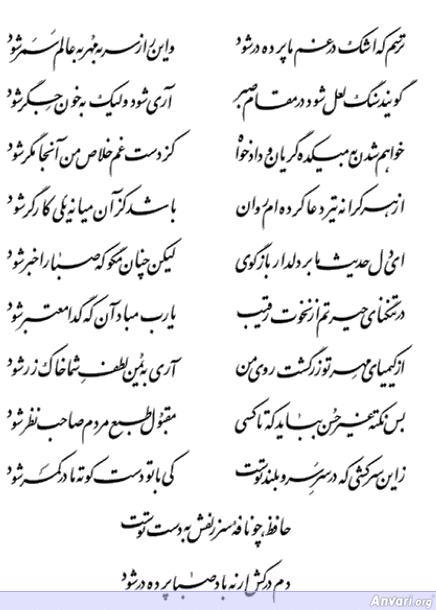 ترسم که اشک در غم ما پرده در شود واین راز سر به مهر به عالم سمر شود
گویند سنگ لعل شود در مقام صبر آری شود ولیک به خون جگر شود
خواهم شدن به میکده گریان و دادخواه کز دست غم خلاص من آنجا مگر شود
از هر کرانه تیر دعا کرده ام روان باشد کز آن میانه یکی کارگر شود
ای دل حدیث ما بر دلدار بازگوی لیکن چنان مگو که صبا را خبر شود
در تنگنای حیرتم از نخوت رقیب یارب مباد آن که گدا معتبر شود
از کیمیای مهر تو زر گشت روی من آری به یمن لطف شما خاک زر شود
بس نکته غیر حسن بباید که تا کسی مقبول طبع مردم صاحب نظر شود
زاین سرکشی که در سر سرو بلند توست کی با تو دست کوته ما در کمر شود
حافظ چو نافهٔ سر زلفش به دست توست
دم درکش ار نه باد صبا پرده در شود
Anvari.org